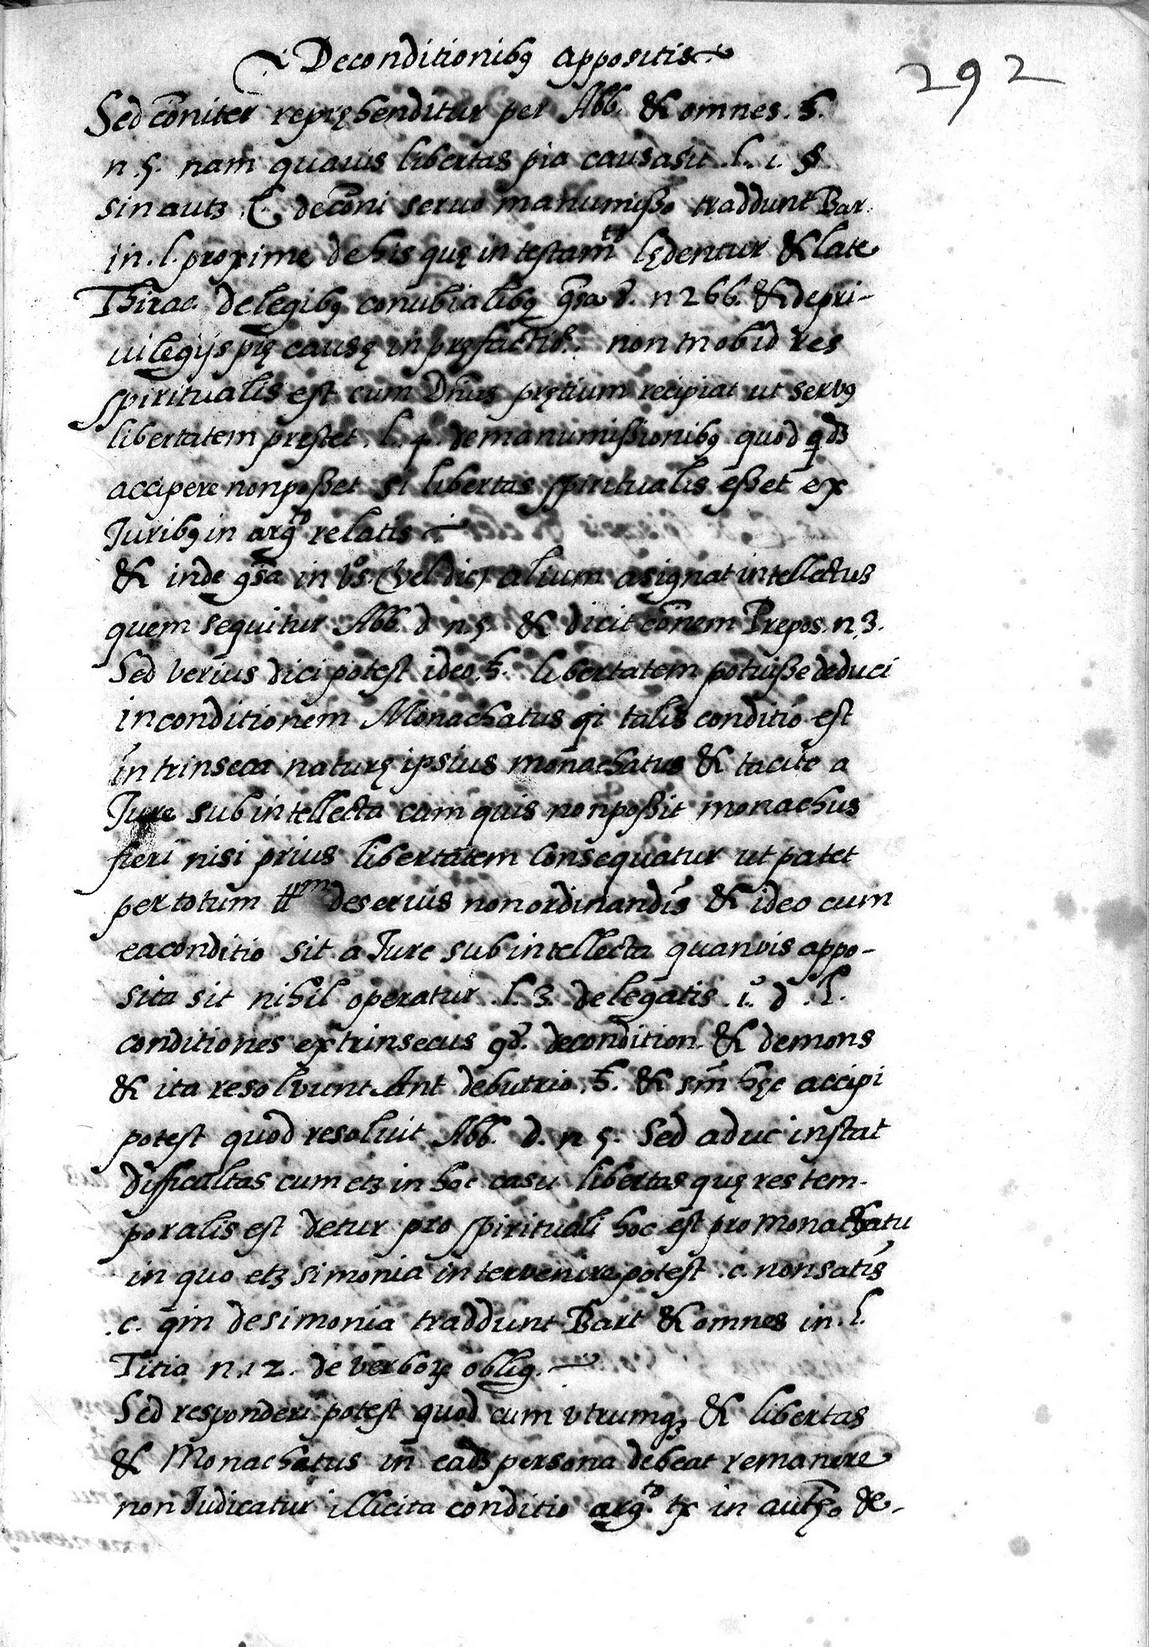 De conditionibꝫ appositis
292
Sed cōniter reprꝫhenditur per Abb. & omnes. ħ.
n. 5. nam quauis libertas pia causa sit .l. 1. §
sin autꝫ C. de cōni seruo manumisso traddunt Bar.
in. l. proxime de his quę in testamto lędentur & late
Thirac. de legibꝫ conubialibꝫ glsa d. n 266. & de pri-
uilegijs pię causę in pręfactiō. non tn ob id res
spiritualis est cum Dn̄us prętium recipiat ut serbꝫ
libertatem prestet .l. 4. de manumissionibꝫ quod qdꝫ
accipere non posset si libertas spiritualis esset ex
Juribꝫ in argto relatis
& inde glsa in vo. (vel dic) alium asignat intellectuꝫ
quem sequitur Abb. d n. 5. & dicit cōnem Prepos. n. 3.
Sed verius dici potest ideo. ħ. libertatem potuisse deduci
in conditionem Monachatus qi talis conditio est
intrinseca naturę ipsius monachatus & tacite a
Jure subintellecta cum quis non possit monachus
fieri nisi prius libertatem consequatur ut patet
per totum ttm de seruis non ordinandis & ideo cum
ea conditio sit a Jure subintellecta quanvis appo-
sita sit nihil operatur .l. 3. de legatis .1o. d .l.
conditiones extrinsecus qd. de condition. & demons
& ita resolvunt Ant de butrio. ħ. & sm̄ hęc accipi
potest quod resoluit Abb. d. n 5. Sed aduc instat
difficultas cum etꝫ in hoc casu libertas quę res tem-
poralis est detur pro spirituali hoc est pro monachatu
in quo etꝫ simonia intervenire potest .c. non satis
.c. qm̄ de simonia traddunt Bart & omnes in. l.
Titia n. 12. de verborꝝ oblig.
Sed responderi potest quod cum vtrumqꝫ & libertas
& Monachatus in eadꝫ persona debeat remanere
non Judicatur illicita conditio argto tx in autꝫ. de-